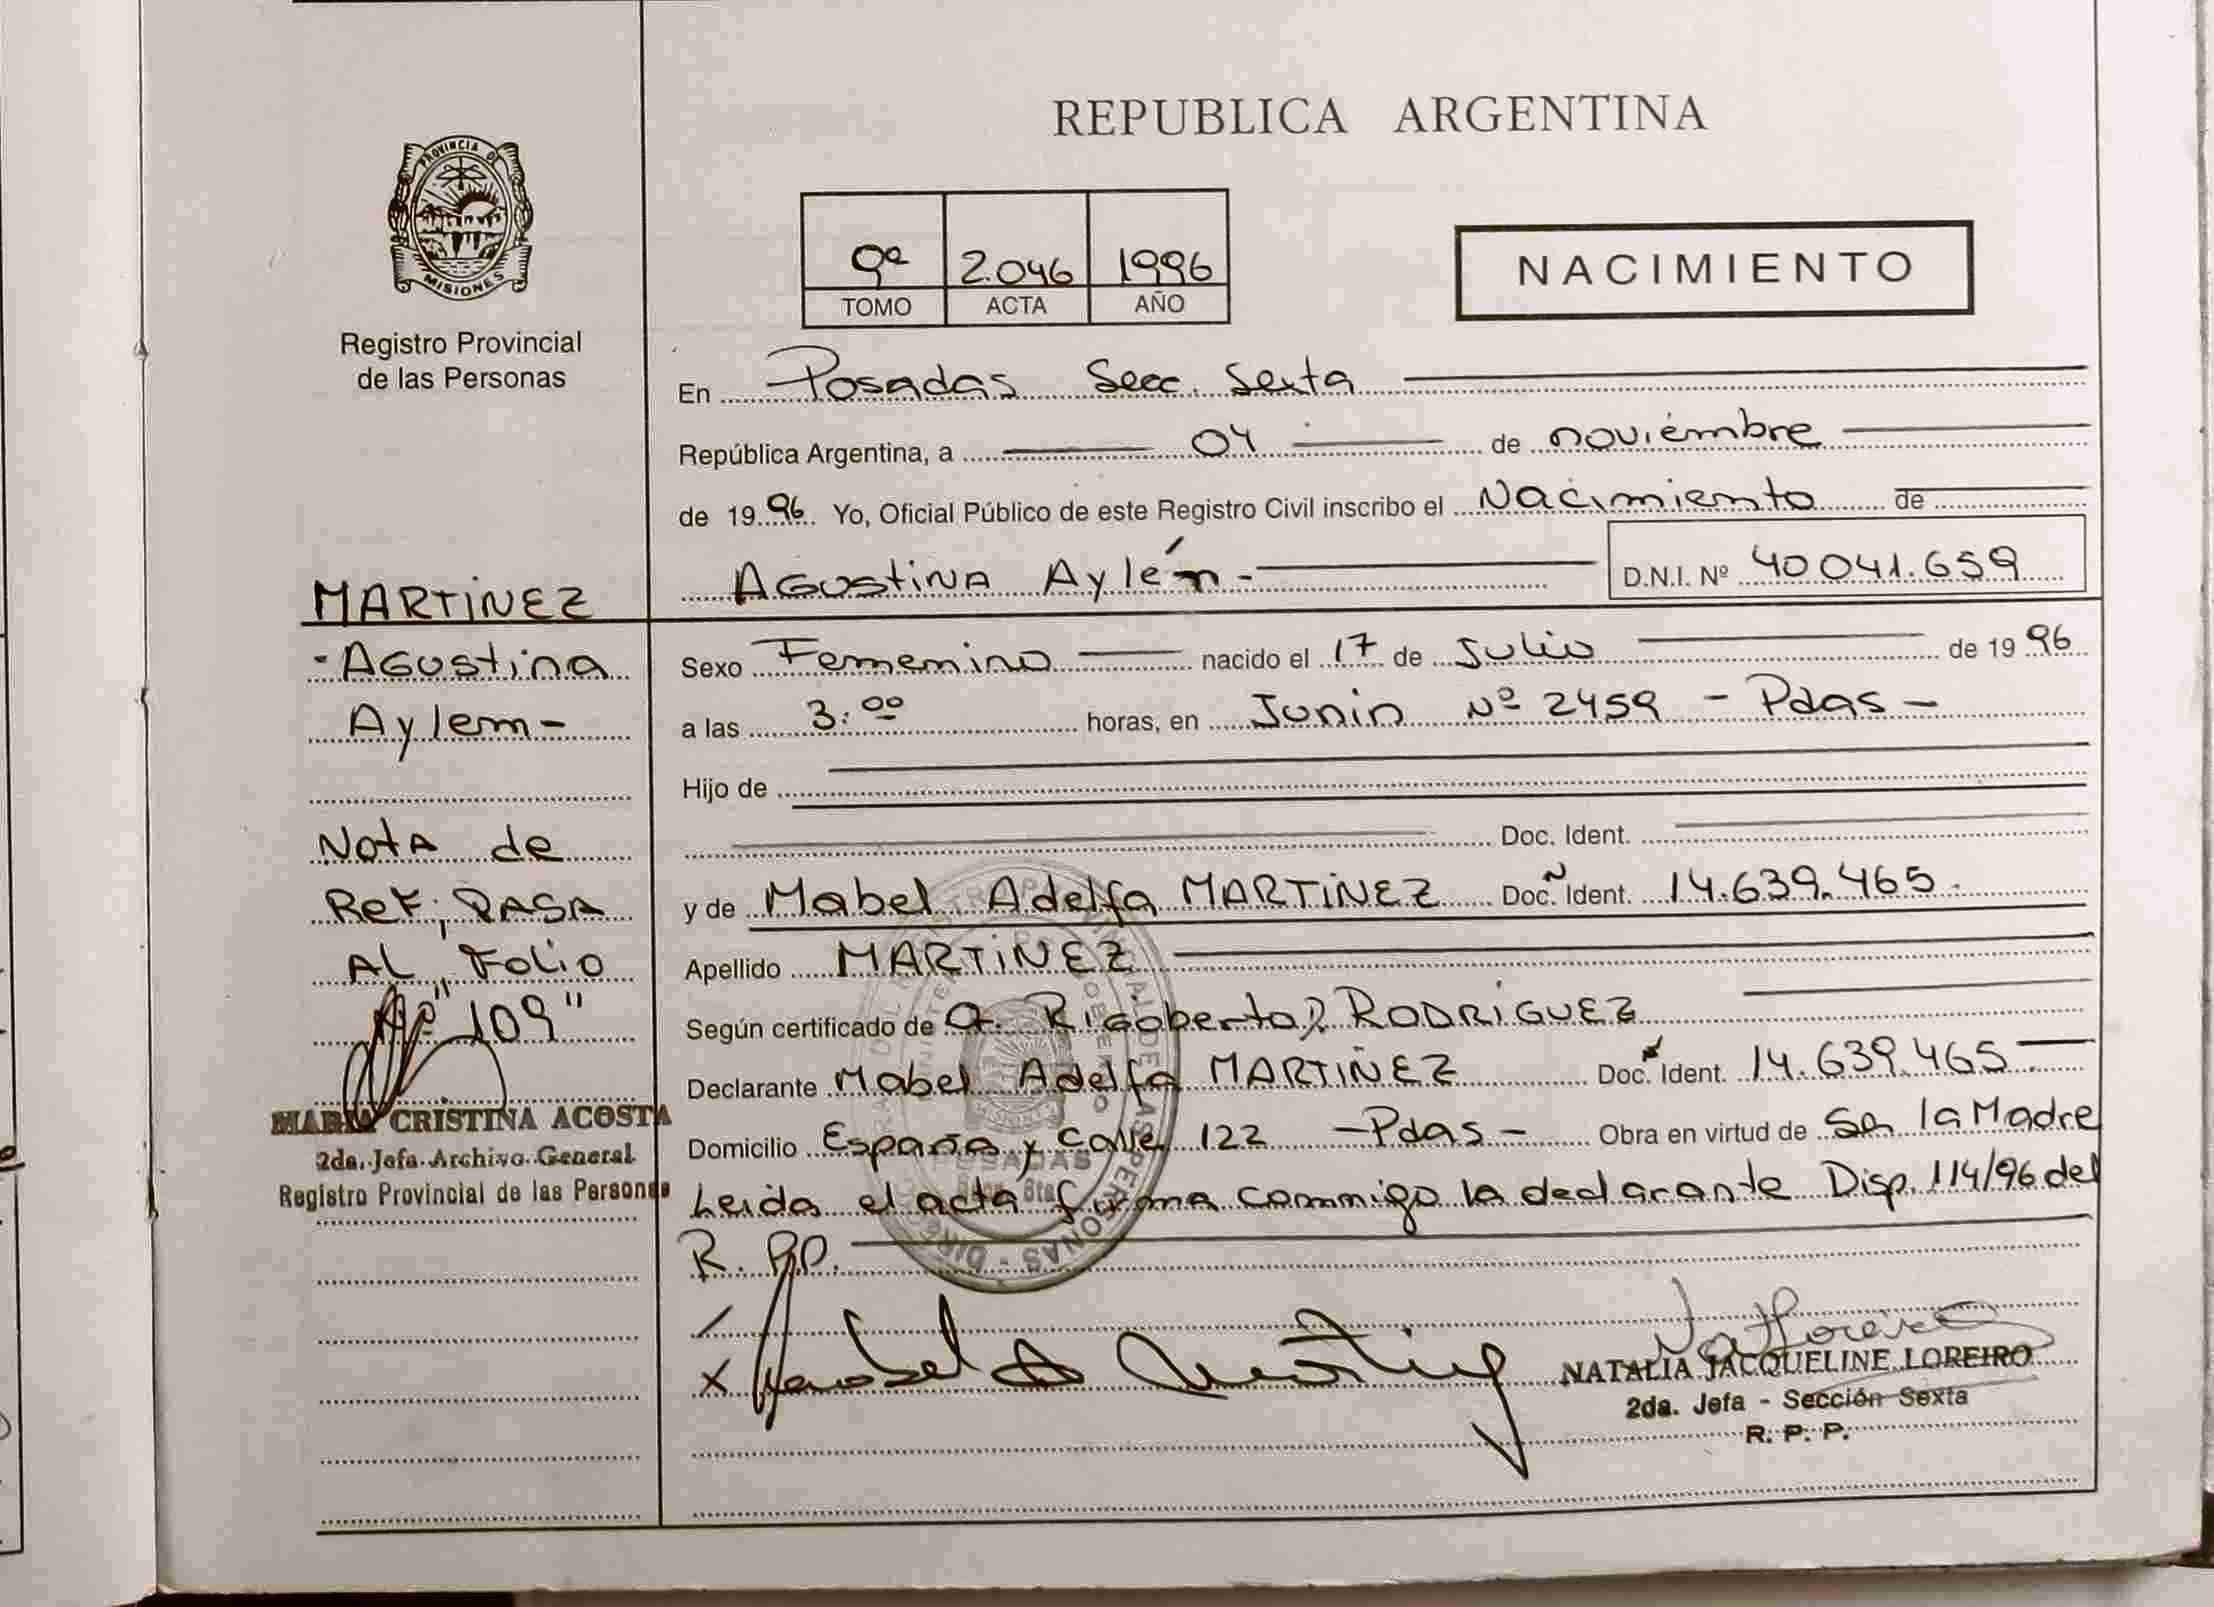 REPUBLICA ARGENTINA
PROVINCIA DE
MISIONES
Registro Provincial
de las Personas
9ª 2.046 1996
TOMO ACTA AÑO
NACIMIENTO
En Posadas Secc. Sexta
República Argentina, a 04 de noviembre
de 1996. Yo, Oficial Público de este Registro Civil inscribo el Nacimiento de
Agustina Aylén - D.N.I. Nº 40041.659
Sexo Femenino nacido el 17 de Julio de 1996
a las 3:00 horas, en Junin Nº 2459 - Pdas -
Hijo de
Doc. Ident.
y de Mabel Adelfa MARTINEZ Doc. Ident. 14.639.465.
Apellido MARTINEZ
Según certificado de Rigoberto RODRIGUEZ
Declarante Mabel Adelfa MARTINEZ Doc. Ident. 14.639.465.
Domicilio España y Calle 122 - Pdas - Obra en virtud de la Madre
Leida el acta firma conmigo la declarante Disp. 114/96 del
R. P.P.
X
NATALIA JACQUELINE LOREIRO
2da. Jefa - Sección Sexta
R. P. P.
MARTINEZ
- Agustina
Aylem -
Nota de
Ref; PASA
AL Folio
Nº "109"
MARIA CRISTINA ACOSTA
2da. Jefa Archivo General
Registro Provincial de las Personas